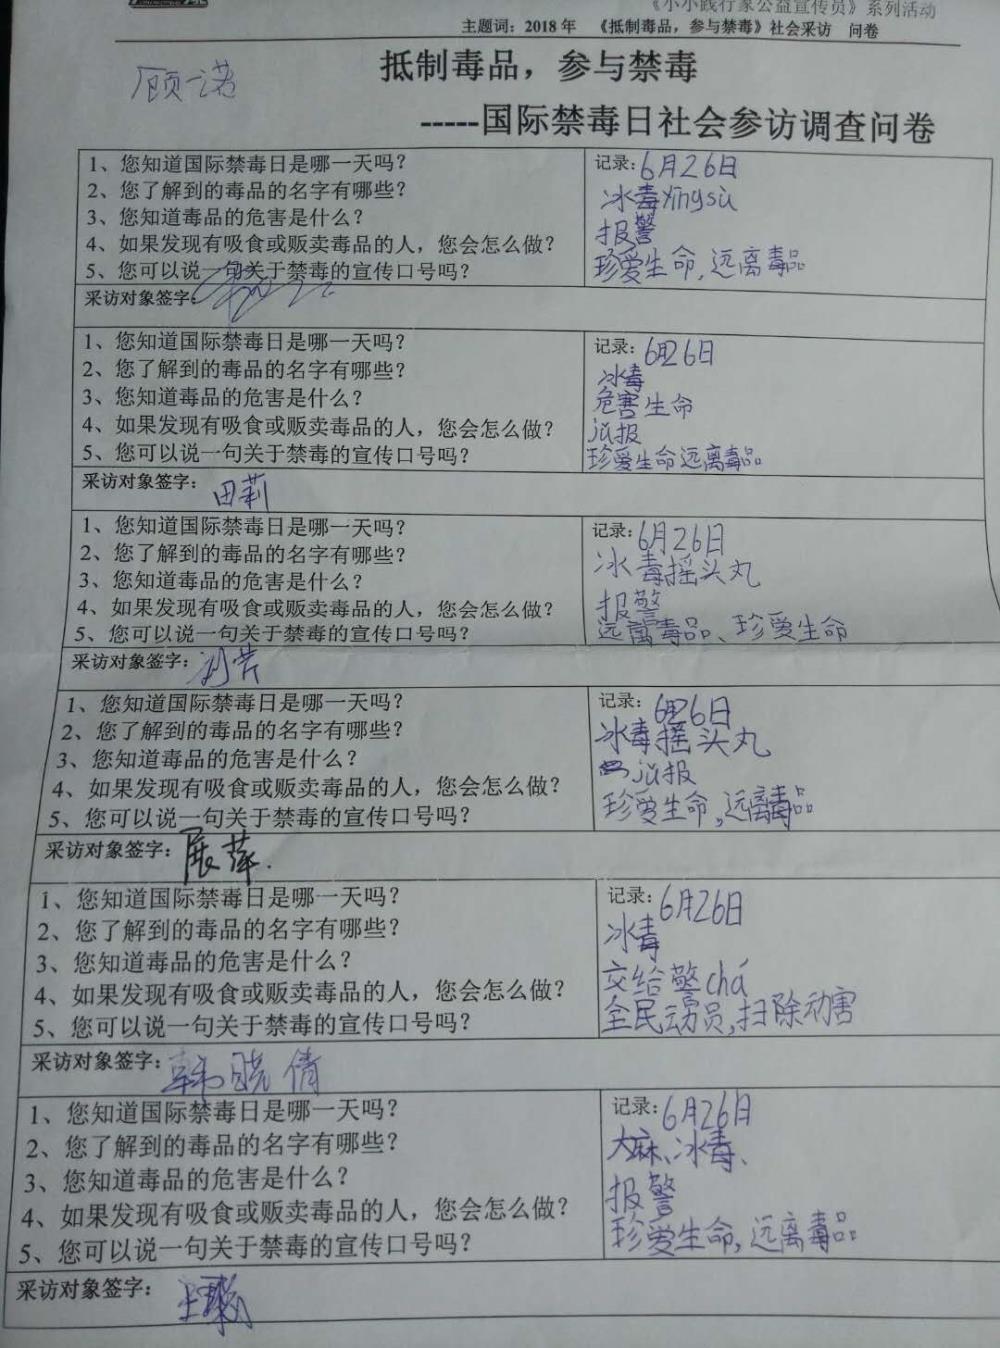 《小小践行家公益宣传员》系列活动
主题词：2018年 《抵制毒品，参与禁毒》社会采访 问卷
顾一诺
抵制毒品，参与禁毒
-----国际禁毒日社会参访调查问卷
1、您知道国际禁毒日是哪一天吗？
2、您了解到的毒品的名字有哪些？
3、您知道毒品的危害是什么？
4、如果发现有吸食或贩卖毒品的人，您会怎么做？
5、您可以说一句关于禁毒的宣传口号吗？
记录：6月26日
冰毒yīngsù
报警
珍爱生命，远离毒品
采访对象签字：
1、您知道国际禁毒日是哪一天吗？
2、您了解到的毒品的名字有哪些？
3、您知道毒品的危害是什么？
4、如果发现有吸食或贩卖毒品的人，您会怎么做？
5、您可以说一句关于禁毒的宣传口号吗？
记录：6月26日
冰毒
危害生命
报
珍爱生命远离毒品
采访对象签字：田莉
1、您知道国际禁毒日是哪一天吗？
2、您了解到的毒品的名字有哪些？
3、您知道毒品的危害是什么？
4、如果发现有吸食或贩卖毒品的人，您会怎么做？
5、您可以说一句关于禁毒的宣传口号吗？
记录：6月26日
冰毒摇头丸
报警
远离毒品、珍爱生命
采访对象签字：
1、您知道国际禁毒日是哪一天吗？
2、您了解到的毒品的名字有哪些？
3、您知道毒品的危害是什么？
4、如果发现有吸食或贩卖毒品的人，您会怎么做？
5、您可以说一句关于禁毒的宣传口号吗？
记录：6月26日
冰毒摇头丸
报
珍爱生命，远离毒品
采访对象签字：展萍.
1、您知道国际禁毒日是哪一天吗？
2、您了解到的毒品的名字有哪些？
3、您知道毒品的危害是什么？
4、如果发现有吸食或贩卖毒品的人，您会怎么做？
5、您可以说一句关于禁毒的宣传口号吗？
记录：6月26日
冰毒
交给警chá
全民动员，扫除动害
采访对象签字：韩晓倩
1、您知道国际禁毒日是哪一天吗？
2、您了解到的毒品的名字有哪些？
3、您知道毒品的危害是什么？
4、如果发现有吸食或贩卖毒品的人，您会怎么做？
5、您可以说一句关于禁毒的宣传口号吗？
记录：6月26日
大麻、冰毒、
报警
珍爱生命，远离毒品
采访对象签字：